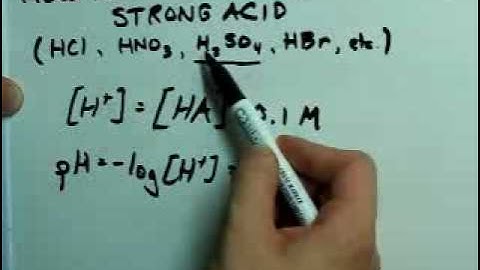 STRONG ACID
(HCl, HNO₃, H₂SO₄, HBr, etc.)
[H⁺] = [HA] .1 M
pH = -log[H⁺] =